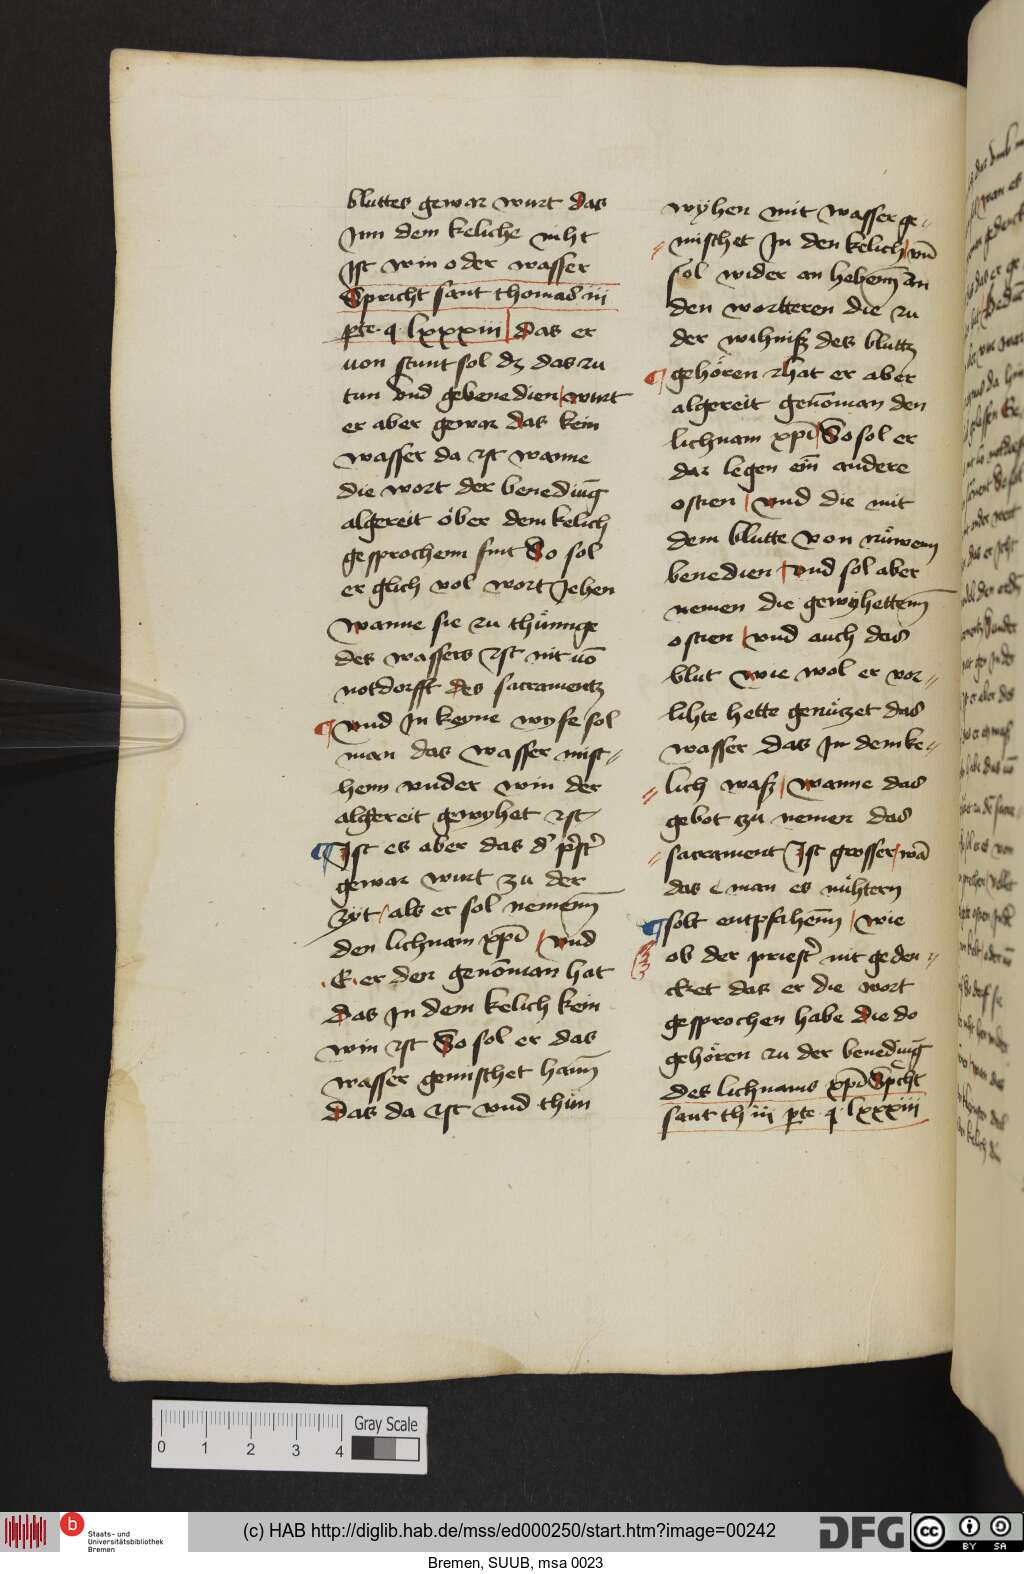 bluttes gewar wurt das
Jnn dem keliche niht
Jst win oder wasser
Spricht sant thomas iij
pte q lxxxiii das er
uon stunt sol dz das zu
tun vnd gebenedien wurt
er aber gewar das kein
wasser da ist wanne
die wort der benediūg
algereit öber dem kelich
gesprochenn sint So sol
er glich vol wort Jehen
wanne sie zu thünnge
des wassers ist nit uō
notdorfft des sacramentz
vnd Jn keyne wyse sol
man das wasser mist-
henn vnder win der
algereit gewyhet ist
Jst es aber das d' p̄st'
gewar wurt zu der
zyt als er sol nemenn̄
den lichnam xp̄i vnd
E er den genōman hat
das Jn dem kelich kein
win ist So sol er das
wasser gemisthet hann̄
das da ist vnd thün
wÿhen mit wasser ge-
misthet Jn den kelich vn̄
sol wider an hebenn̄ an
den wortteren die zu
der wihnisz des bluttz
gehören hat er aber
algereit genōman den
lichnam xp̄i So sol er
dar legen ein̄ andere
ostien vnd die mit
dem blutte von nüwenn
benedien vnd sol aber
nemen die gewÿhettenn̄
ostien vnd auch das
blut wie wol er vor-
lihte hette genützet das
wasser das Jn dem ke-
lich wasz wanne das
gebot tzu nemen das
sacrament Jst grosser wā
das man es nühtern
solt entpfahenn̄ wie
ob der priest' nit geden-
cket das er die wort
gesprochen habe die do
gehören zu der benediūg
des lichnams xp̄i Sp̄cht
sant th iij pte q lxxxiii
Gray Scale
0 1 2 3 4
b
Staats- und
Universitätsbibliothek
Bremen
(c) HAB http://diglib.hab.de/mss/ed000250/start.htm?image=00242
DFG
cc
BY SA
Bremen, SUUB, msa 0023